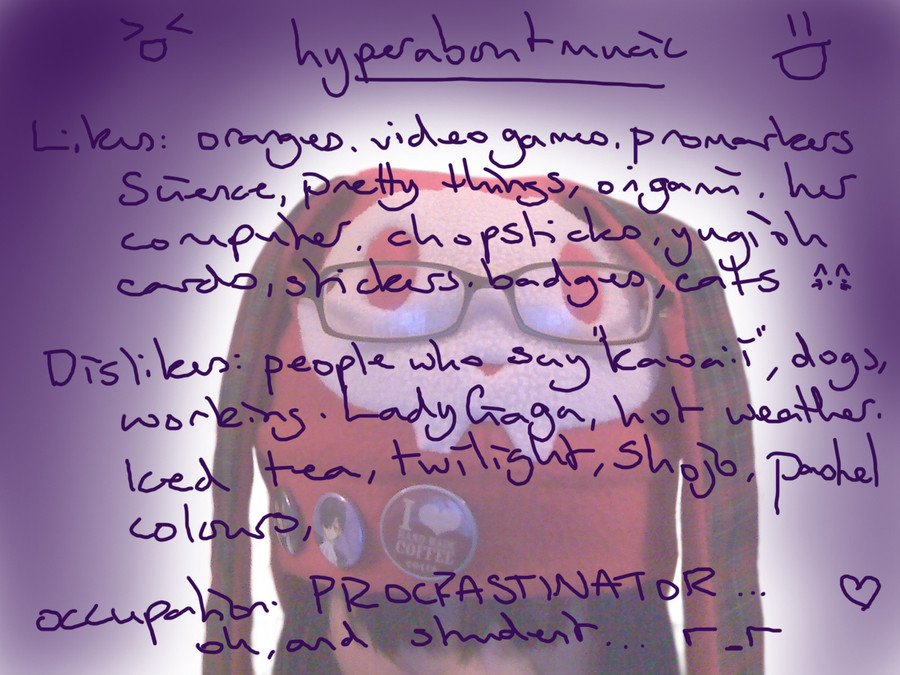 >o< hyperaboutmusic =D
Likes: oranges. video games. promarkers
Science, pretty things, origami. her
computer. chopsticks, yugioh
cards, stickers. badges, cats ^.^
Dislikes: people who say "kawaii", dogs,
working. Lady Gaga, hot weather.
Iced tea, twilight, Shojo, pastel
colours,
I ♥
HAND MADE
COFFEE
occupation: PROCRASTINATOR ... ♡
oh, and student... r_r